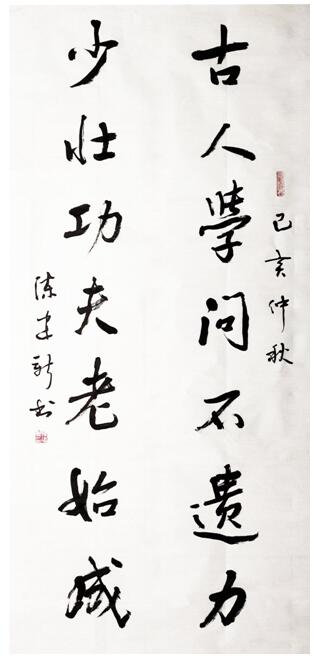 己亥仲秋
古人學问不遗力
少壮功夫老始成
陈建新书